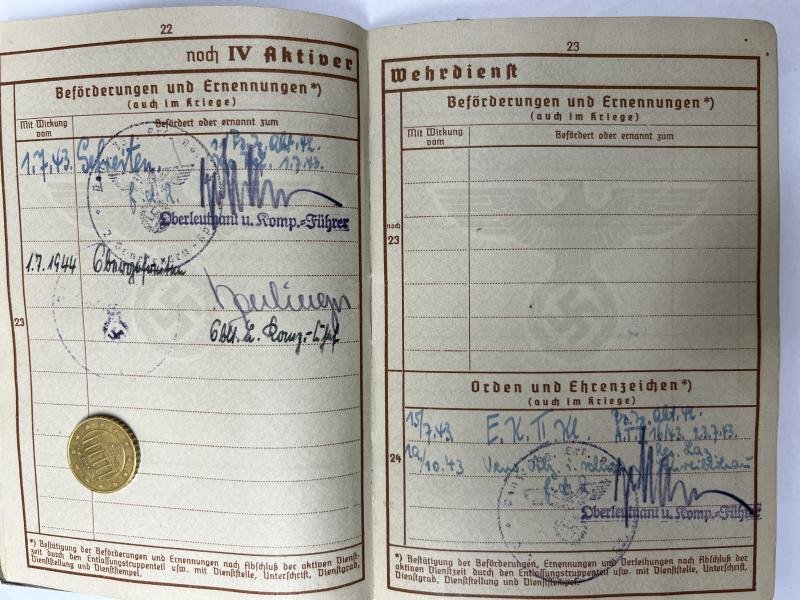 22
noch IV Aktiver
Beförderungen und Ernennungen*)
(auch im Kriege)
Mit Wirkung vom
Befördert oder ernannt zum
1.7.43. Gefreiten. Pz. Jg. Abt. 42.
1.7.43.
f. d. R.
Oberleutnant u. Komp.-Führer
1.7.1944 Obergefreiten
23
Oblt. u. Komp.-Chef
*) Bestätigung der Beförderungen und Ernennungen nach Abschluß der aktiven Dienst-
zeit durch den Entlassungstruppenteil usw. mit Dienststelle, Unterschrift, Dienstgrad,
Dienststellung und Dienststempel.
23
Wehrdienst
Beförderungen und Ernennungen*)
(auch im Kriege)
Mit Wirkung vom
Befördert oder ernannt zum
noch
23
Orden und Ehrenzeichen*)
(auch im Kriege)
15/7.43 E.K. II Kl. Pz. Jg. Abt. 42.
A.T. 16/43 23.7.43.
10.43 Verw. Abz. i. Res. Laz.
24
f. d. R.
Oberleutnant u. Komp.-Führer
*) Bestätigung der Beförderungen, Ernennungen und Verleihungen nach Abschluß der
aktiven Dienstzeit durch den Entlassungstruppenteil usw. mit Dienststelle, Unterschrift,
Dienstgrad, Dienststellung und Dienststempel.